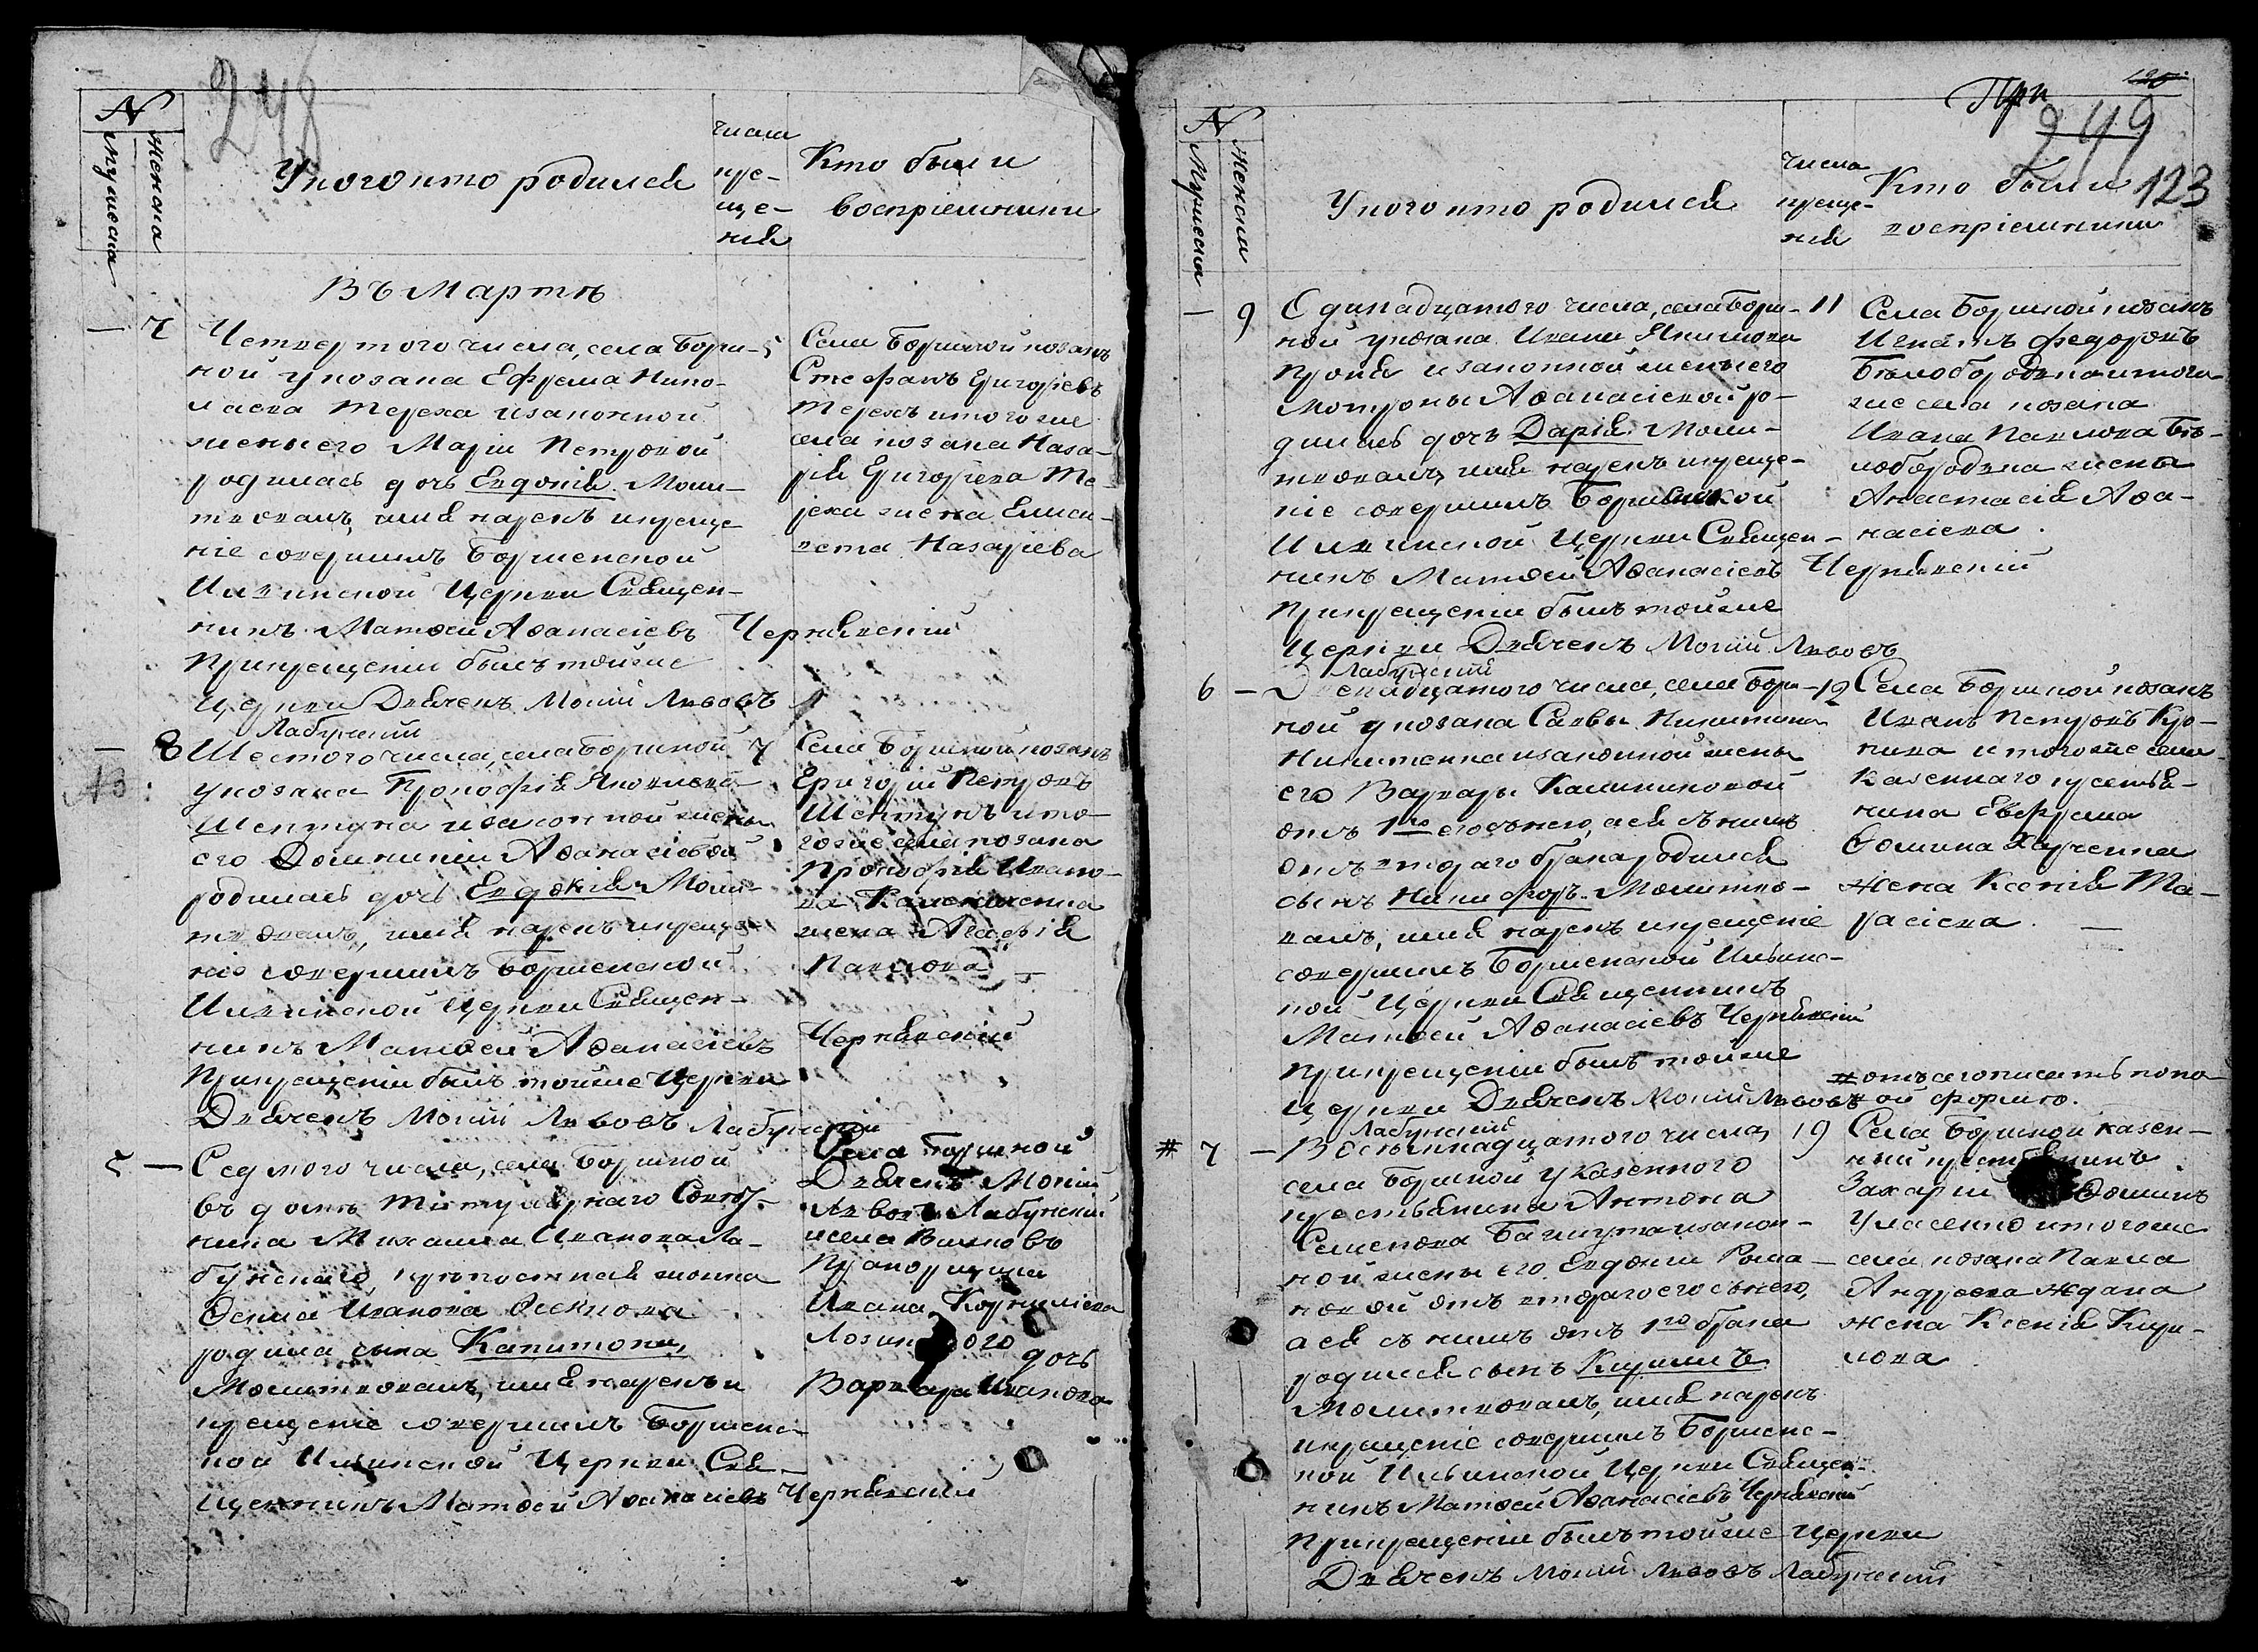 248
N
мужеска
женска
У кого кто родился
числа
кре-
ще-
нія
Кто были
воспріемники
Въ Мартѣ
— 7 Четвертого числа, села Борз-
ной у козака Ефрема Нико-
лаева Тереха и законной
жены его Маріи Петровой
родилась дочь Евдокія Моли-
твовалъ, имя нарекъ и креще-
ніе совершилъ Борзенской
Илвинской Церкви Священ-
никъ Матѳей Аѳанасіевъ Чернявскій
При крещеніи былъ тойже
Церкви Дьячекъ Мокій Львовъ
Лабунскій
5
Села Борзной козакъ
Стефанъ Григоріевъ
Терехъ и того же
села козака Наза-
рія Григорієва Те-
реха жена Елиса-
вета Назаріева
— 8 Шестого числа, села Борзной
у козака Прокофія Яковлева
Шептуна и законной жены
его Домникіи Аѳанасіевой
родилась дочь Евдокія Моли-
твовалъ, имя нарекъ и креще-
ніе совершилъ Борзенской
Илвинской Церкви Священ-
никъ Матѳей Аѳанасіевъ Чернявскій
При крещеніи былъ тойже Церкви
Дьячекъ Мокій Львовъ Лабунскій
7
Села Борзной козакъ
Григорій Петровъ
Шептунъ и то-
гоже села козака
Прокофія Ивано-
ва
жена Агафія
Павлова
5 — Седмого числа, села Борзной
въ домѣ Титулярнаго Совѣт-
ника Михаила Иванова Ла-
бунскаго крѣпостная жонка
Иванова
родила сына Капитона,
Молитвовалъ, имя нарекъ и
крещеніе совершилъ Борзенс-
кой Илвинской Церкви Свя-
щенникъ Матѳей Аѳанасіевъ Чернявскій
Села Борзной
Дьячекъ Мокій
Львовъ Лабунскій
и села
Прапорщика
Ивана Корниліева
дочь
Варвара Иванова
При
249
123
N
Мужеска
Женска
У кого кто родился
числа
креще-
нія
Кто были
воспріемники
— 9 Единадцатого числа, села Борз-
ной у козака Ивана Якимова
и законной жены его
Мотроны Аѳанасіевой ро-
дилась дочь Дарія. Моли-
твовалъ, имя нарекъ и креще-
ніе совершилъ Борзенской
Илвинской Церкви Священ-
никъ Матѳей Аѳанасіевъ Чернявскій
При крещеніи былъ тойже
Церкви Дьячекъ Мокій Львовъ
Лабунскій
11
Села Борзной козакъ
Игнатъ Федоровъ
и того
же села козака
Ивана Павлова Бѣ-
жена
Анастасія Аѳа-
насіева.
6 — Двенадцатого числа, села Борз-
ной у козака Саввы Никитина
Никитенка и законной жены
его Варвары Калиниковой
отъ 1го его съ нею, а ея съ нимъ
отъ втораго брака родился
сынъ Никифоръ. Молитво-
валъ, имя нарекъ и крещеніе
совершилъ Борзенской Ильинс-
кой Церкви Священникъ
Матѳей Аѳанасіевъ Чернявскій
При крещеніи былъ тойже
Церкви Дьячекъ Мокій Львовъ
Лабунскій
12
Села Борзной козакъ
Иванъ Петровъ
и того же села
казеннаго крестья-
нина Евфрема
Ѳомина Харченка
жена Ксенія Та-
расіева. —
# отъ сего писать по но-
вой формѣ.
# 7 — Восемнадцатого числа,
села Борзной у казенного
крестьянина Антона
Семенова и закон-
ной жены его Евдокіи Рома-
новой отъ втораго его съ нею,
а ея съ нимъ отъ 1го брака
родился сынъ Кирилъ
Молитвовалъ, имя нарекъ
и крещеніе совершилъ Борзенс-
кой Ильинской Церкви Священ-
никъ Матѳей Аѳанасіевъ Чернявскій
При крещеніи былъ тойже Церкви
Дьячекъ Мокій Львовъ Лабунскій
19
Села Борзной казен-
ный крестьянинъ
Захарій Ѳоминъ
и того же
села козака Павла
Андреева Ждана
жена Ксенія Кири-
лова